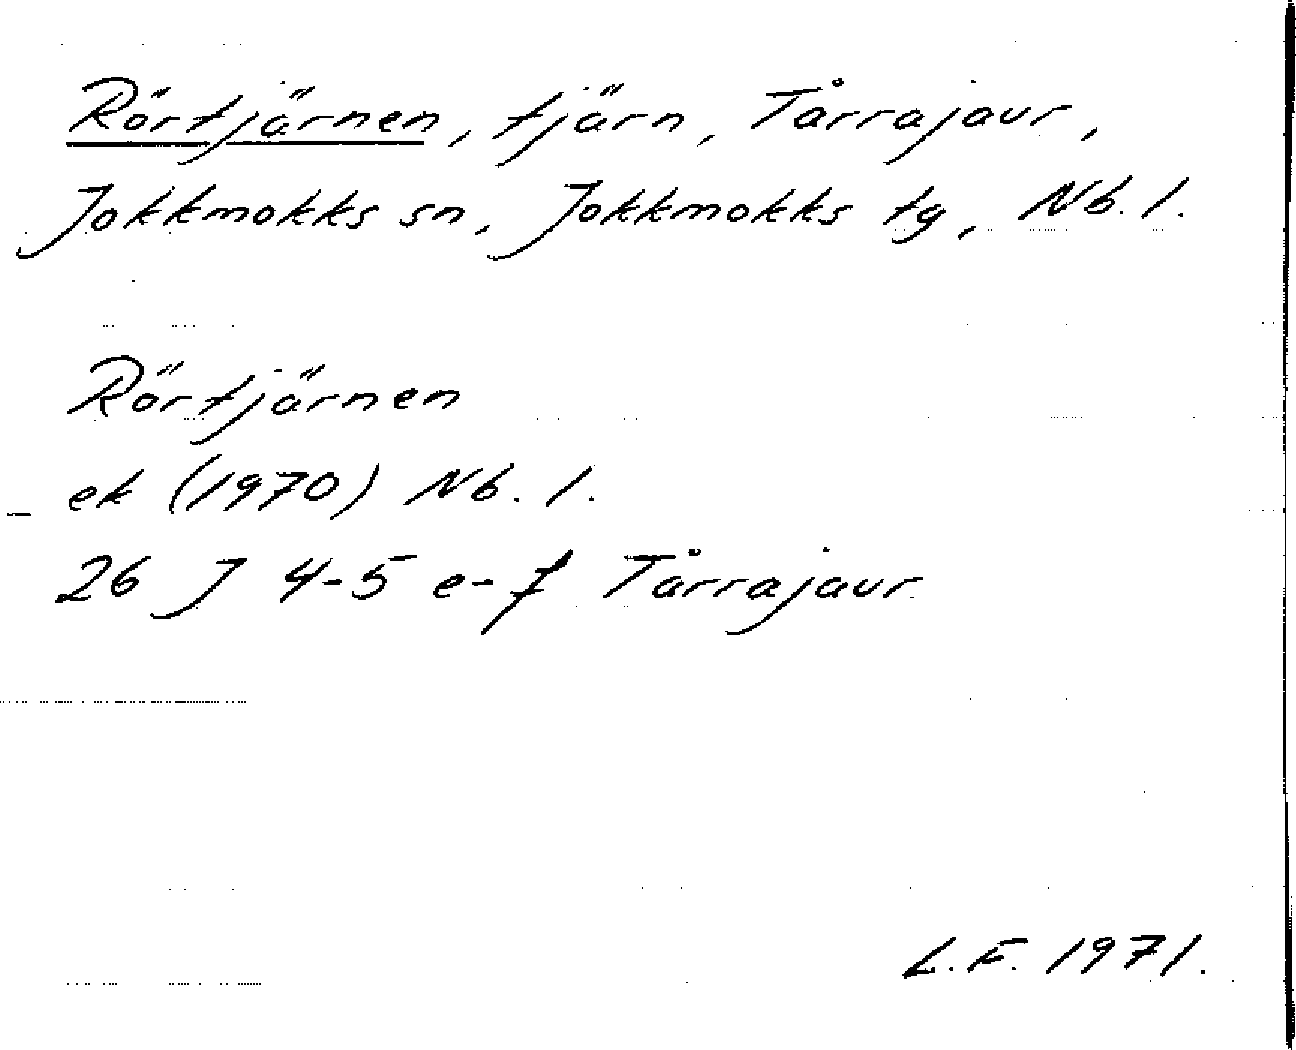 Rörtjärnen, tjärn, Tårrajaur,
Jokkmokks sn, Jokkmokks tg, Nb. l.
Rörtjärnen
ek (1970) Nb. l.
26 J 4-5 e-f Tårrajaur
L.F. 1971.